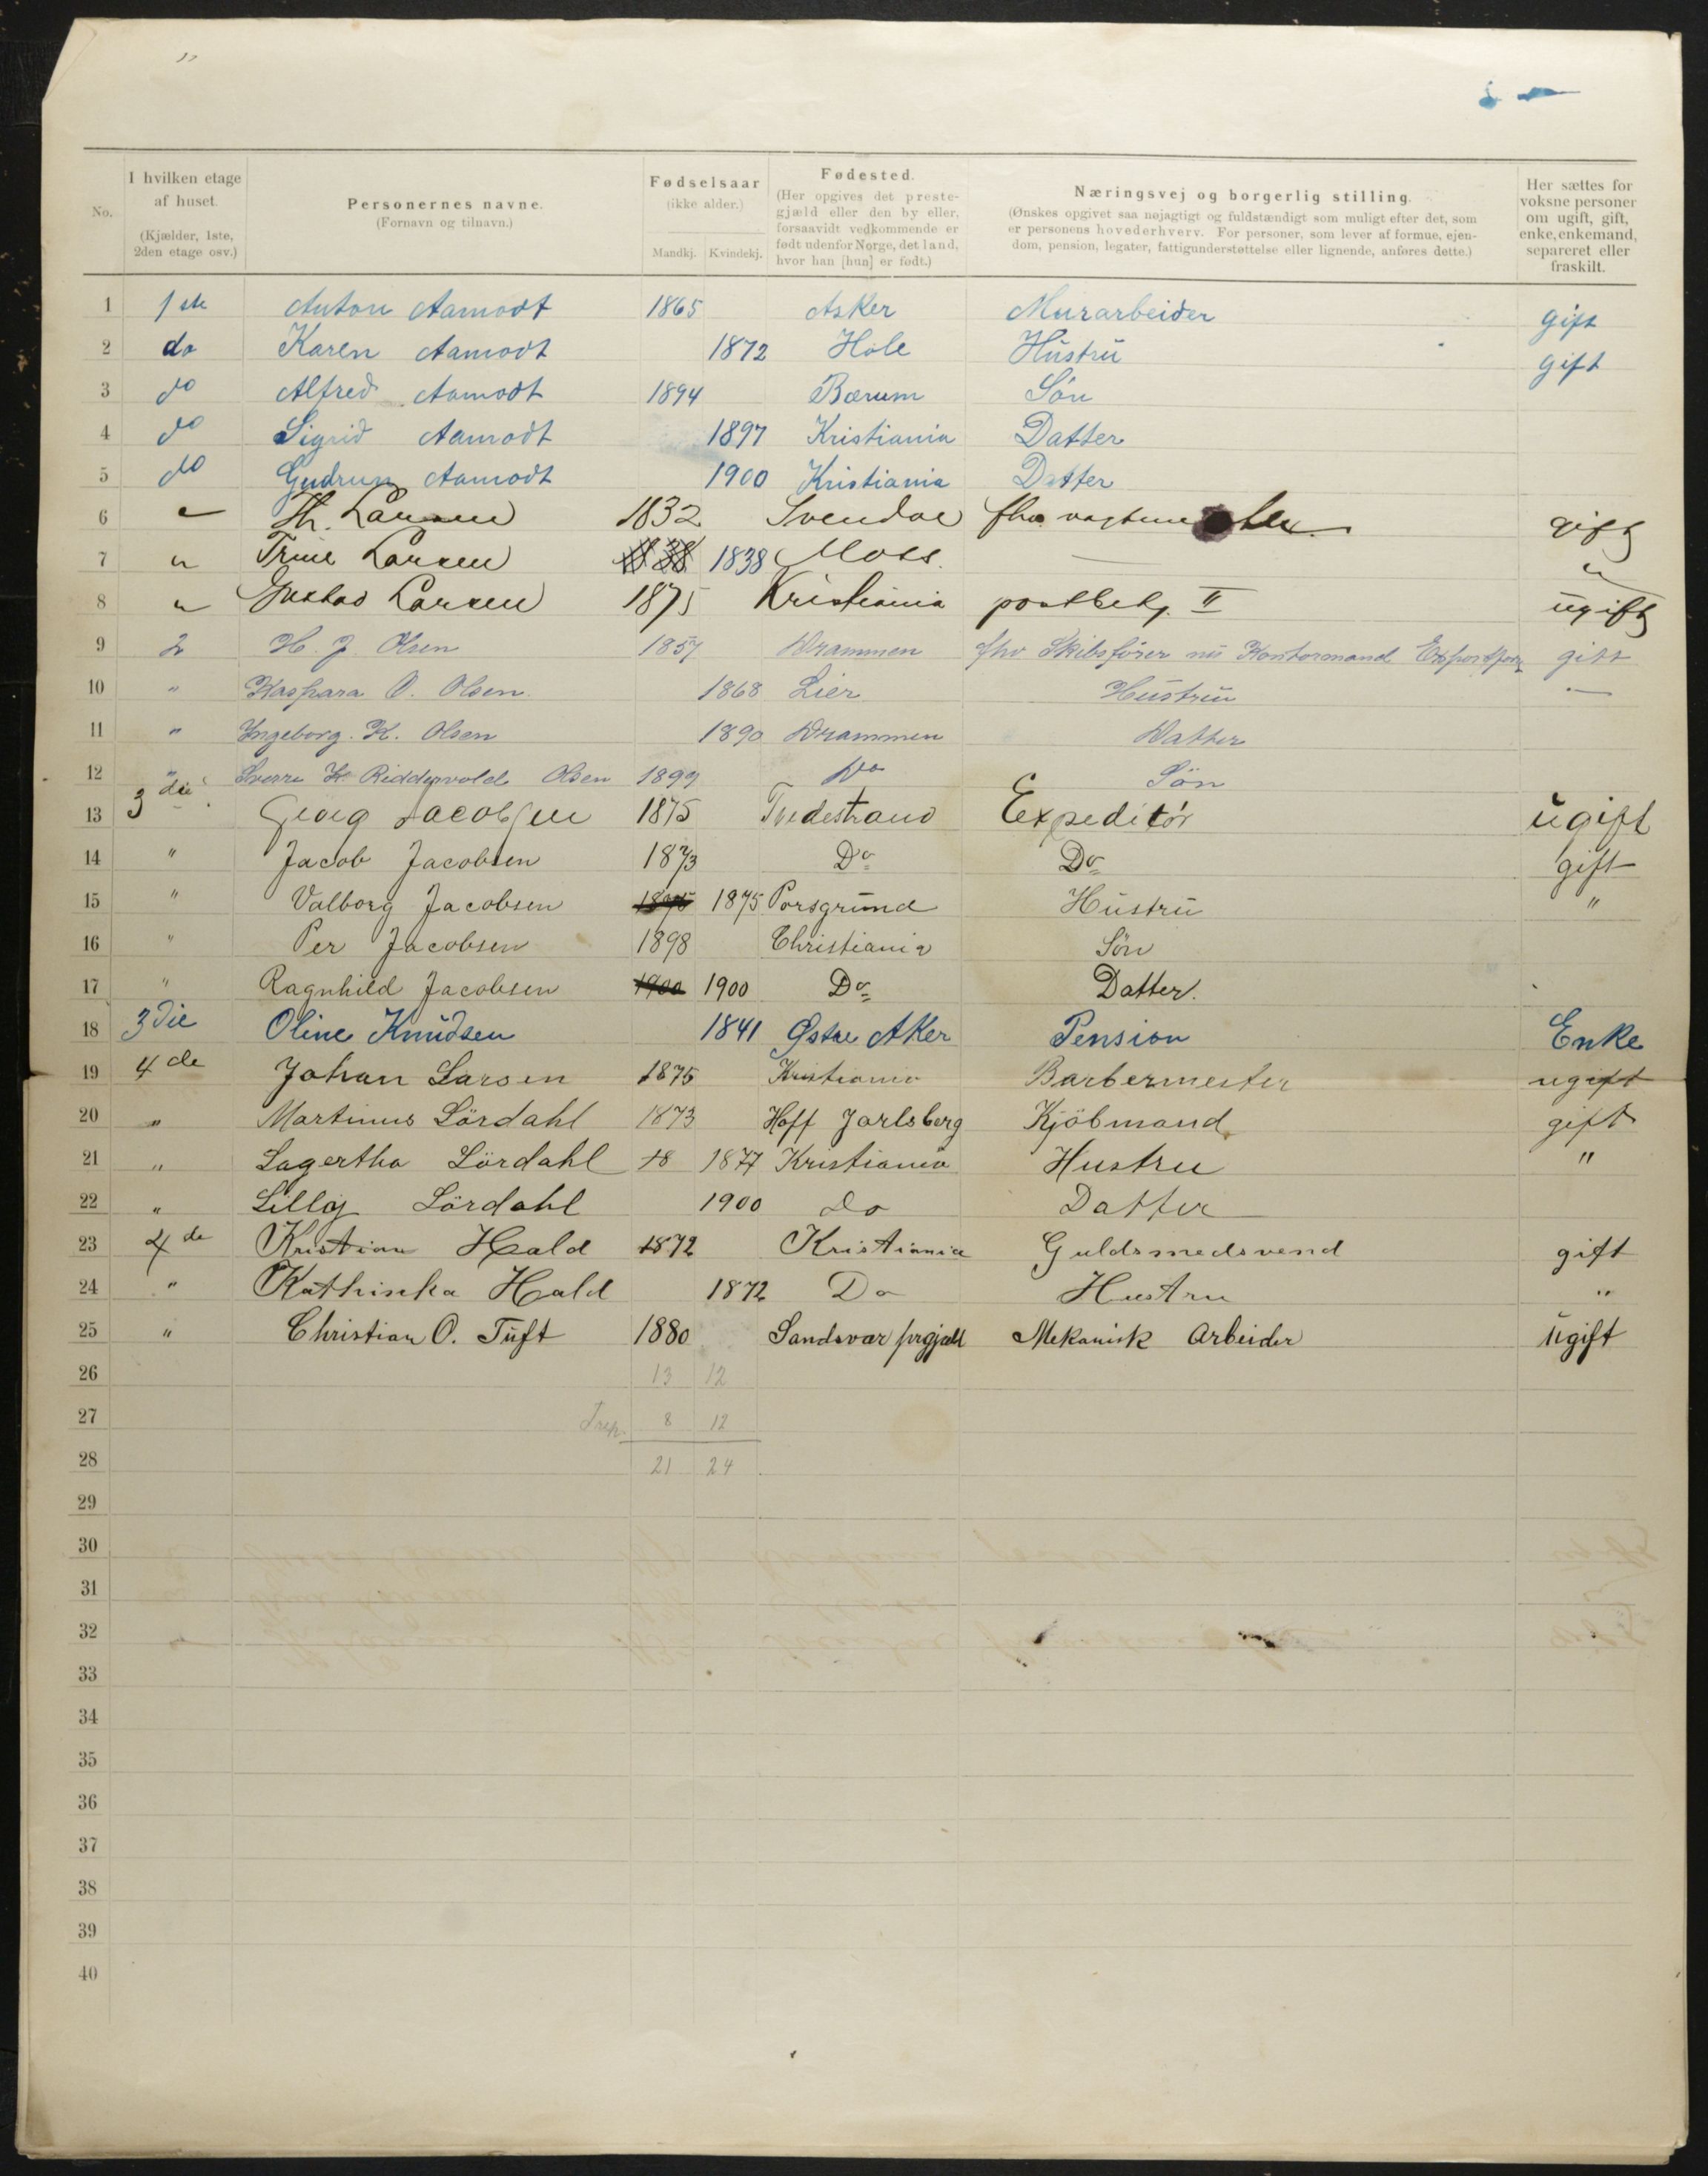 No. I hvilken etage af huset. (Kjælder, 1ste, 2den etage osv.) Personernes navne. (Fornavn og tilnavn.) Fødselsaar (ikke alder.) Mandkj. Kvindekj. Fødested. (Her opgives det prestegjæld eller den by eller, forsaavidt vedkommende er født udenfor Norge, det land, hvor han [hun] er født.) Næringsvej og borgerlig stilling. (Ønskes opgivet saa nøjagtigt og fuldstændigt som muligt efter det, som er personens hovederhverv. For personer, som lever af formue, ejendom, pension, legater, fattigunderstøttelse eller lignende, anføres dette.) Her sættes for voksne personer om ugift, gift, enke, enkemand, separeret eller fraskilt.
1 1ste Anton Aamodt 1865 Asker Murarbeider gift
2 do Karen Aamodt 1872 Hole Hustru gift
3 do Alfred Aamodt 1894 Bærum Søn
4 do Sigrid Aamodt 1897 Kristiania Datter
5 do Gudrun Aamodt 1900 Kristiania Datter
6 " Th. Larsen 1832 Svendøe fhv. gift
7 " Trine Larsen 1838 1838 Moss. — "
8 " Gustav Larsen 1875 Kristiania postbetj. II ugift
9 2 H. J. Olsen 1857 Drammen fhv Skibsfører nu Kontormand gift
10 " Kaspara O. Olsen. 1868 Lier Hustru —
11 " Ingeborg. K. Olsen 1890 Drammen Datter
12 " Sverre Riddervold Olsen 1899 Do Søn
13 3die Georg Jacobsen 1875 Tvedestrand Expeditör ugift
14 " Jacob Jacobsen 1873 Do Do gift
15 " Valborg Jacobsen 1875 1875 Porsgrund Hustru "
16 " Per Jacobsen 1898 Christiania Søn
17 " Ragnhild Jacobsen 1900 1900 Do Datter.
18 3die Oline Knudsen 1841 Østre Aker Pension Enke
19 4de Johan Larsen 1875 Kristiania Barbermester ugift
20 " Martinus Lördahl 1873 Hoff Jarlsberg Kjöbmand gift
21 " Lagertha Lördahl 18 1877 Kristiania Hustru "
22 " Lilly Lördahl 1900 Do Datter
23 4de Kristian Hald 1872 Kristiania Guldsmedsvend gift
24 " Kathinka Hald 1872 Do Hustru "
25 " Christian O. Tuft 1880 Sandsvær prgjæld Mekanisk Arbeider ugift
26 13 12
27 8 12
28 21 24
29
30
31
32
33
34
35
36
37
38
39
40